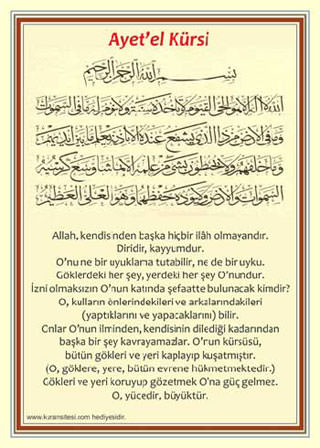 Ayet'el Kürsi
بِسْمِ اللَّهِ الرَّحْمَٰنِ الرَّحِيمِ
اللَّهُ لَا إِلَٰهَ إِلَّا هُوَ الْحَيُّ الْقَيُّومُ لَا تَأْخُذُهُ سِنَةٌ وَلَا نَوْمٌ لَهُ مَا فِي السَّمَاوَاتِ
وَمَا فِي الْأَرْضِ مَنْ ذَا الَّذِي يَشْفَعُ عِنْدَهُ إِلَّا بِإِذْنِهِ يَعْلَمُ مَا بَيْنَ أَيْدِيهِمْ
وَمَا خَلْفَهُمْ وَلَا يُحِيطُونَ بِشَيْءٍ مِنْ عِلْمِهِ إِلَّا بِمَا شَاءَ وَسِعَ كُرْسِيُّهُ
السَّمَاوَاتِ وَالْأَرْضَ وَلَا يَئُودُهُ حِفْظُهُمَا وَهُوَ الْعَلِيُّ الْعَظِيمُ
Allah, kendisinden başka hiçbir ilâh olmayandır.
Diridir, kayyumdur.
O'nu ne bir uyuklama tutabilir, ne de bir uyku.
Göklerdeki her şey, yerdeki her şey O'nundur.
İzni olmaksızın O'nun katında şefaatte bulunacak kimdir?
O, kulların önlerindekileri ve arkalarındakileri
(yaptıklarını ve yapacaklarını) bilir.
Onlar O'nun ilminden, kendisinin dilediği kadarından
başka bir şey kavrayamazlar. O'nun kürsüsü,
bütün gökleri ve yeri kaplayıp kuşatmıştır.
(O, göklere, yere, bütün evrene hükmetmektedir.)
Gökleri ve yeri koruyup gözetmek O'na güç gelmez.
O, yücedir, büyüktür.
www.kuransitesi.com hediyesidir.